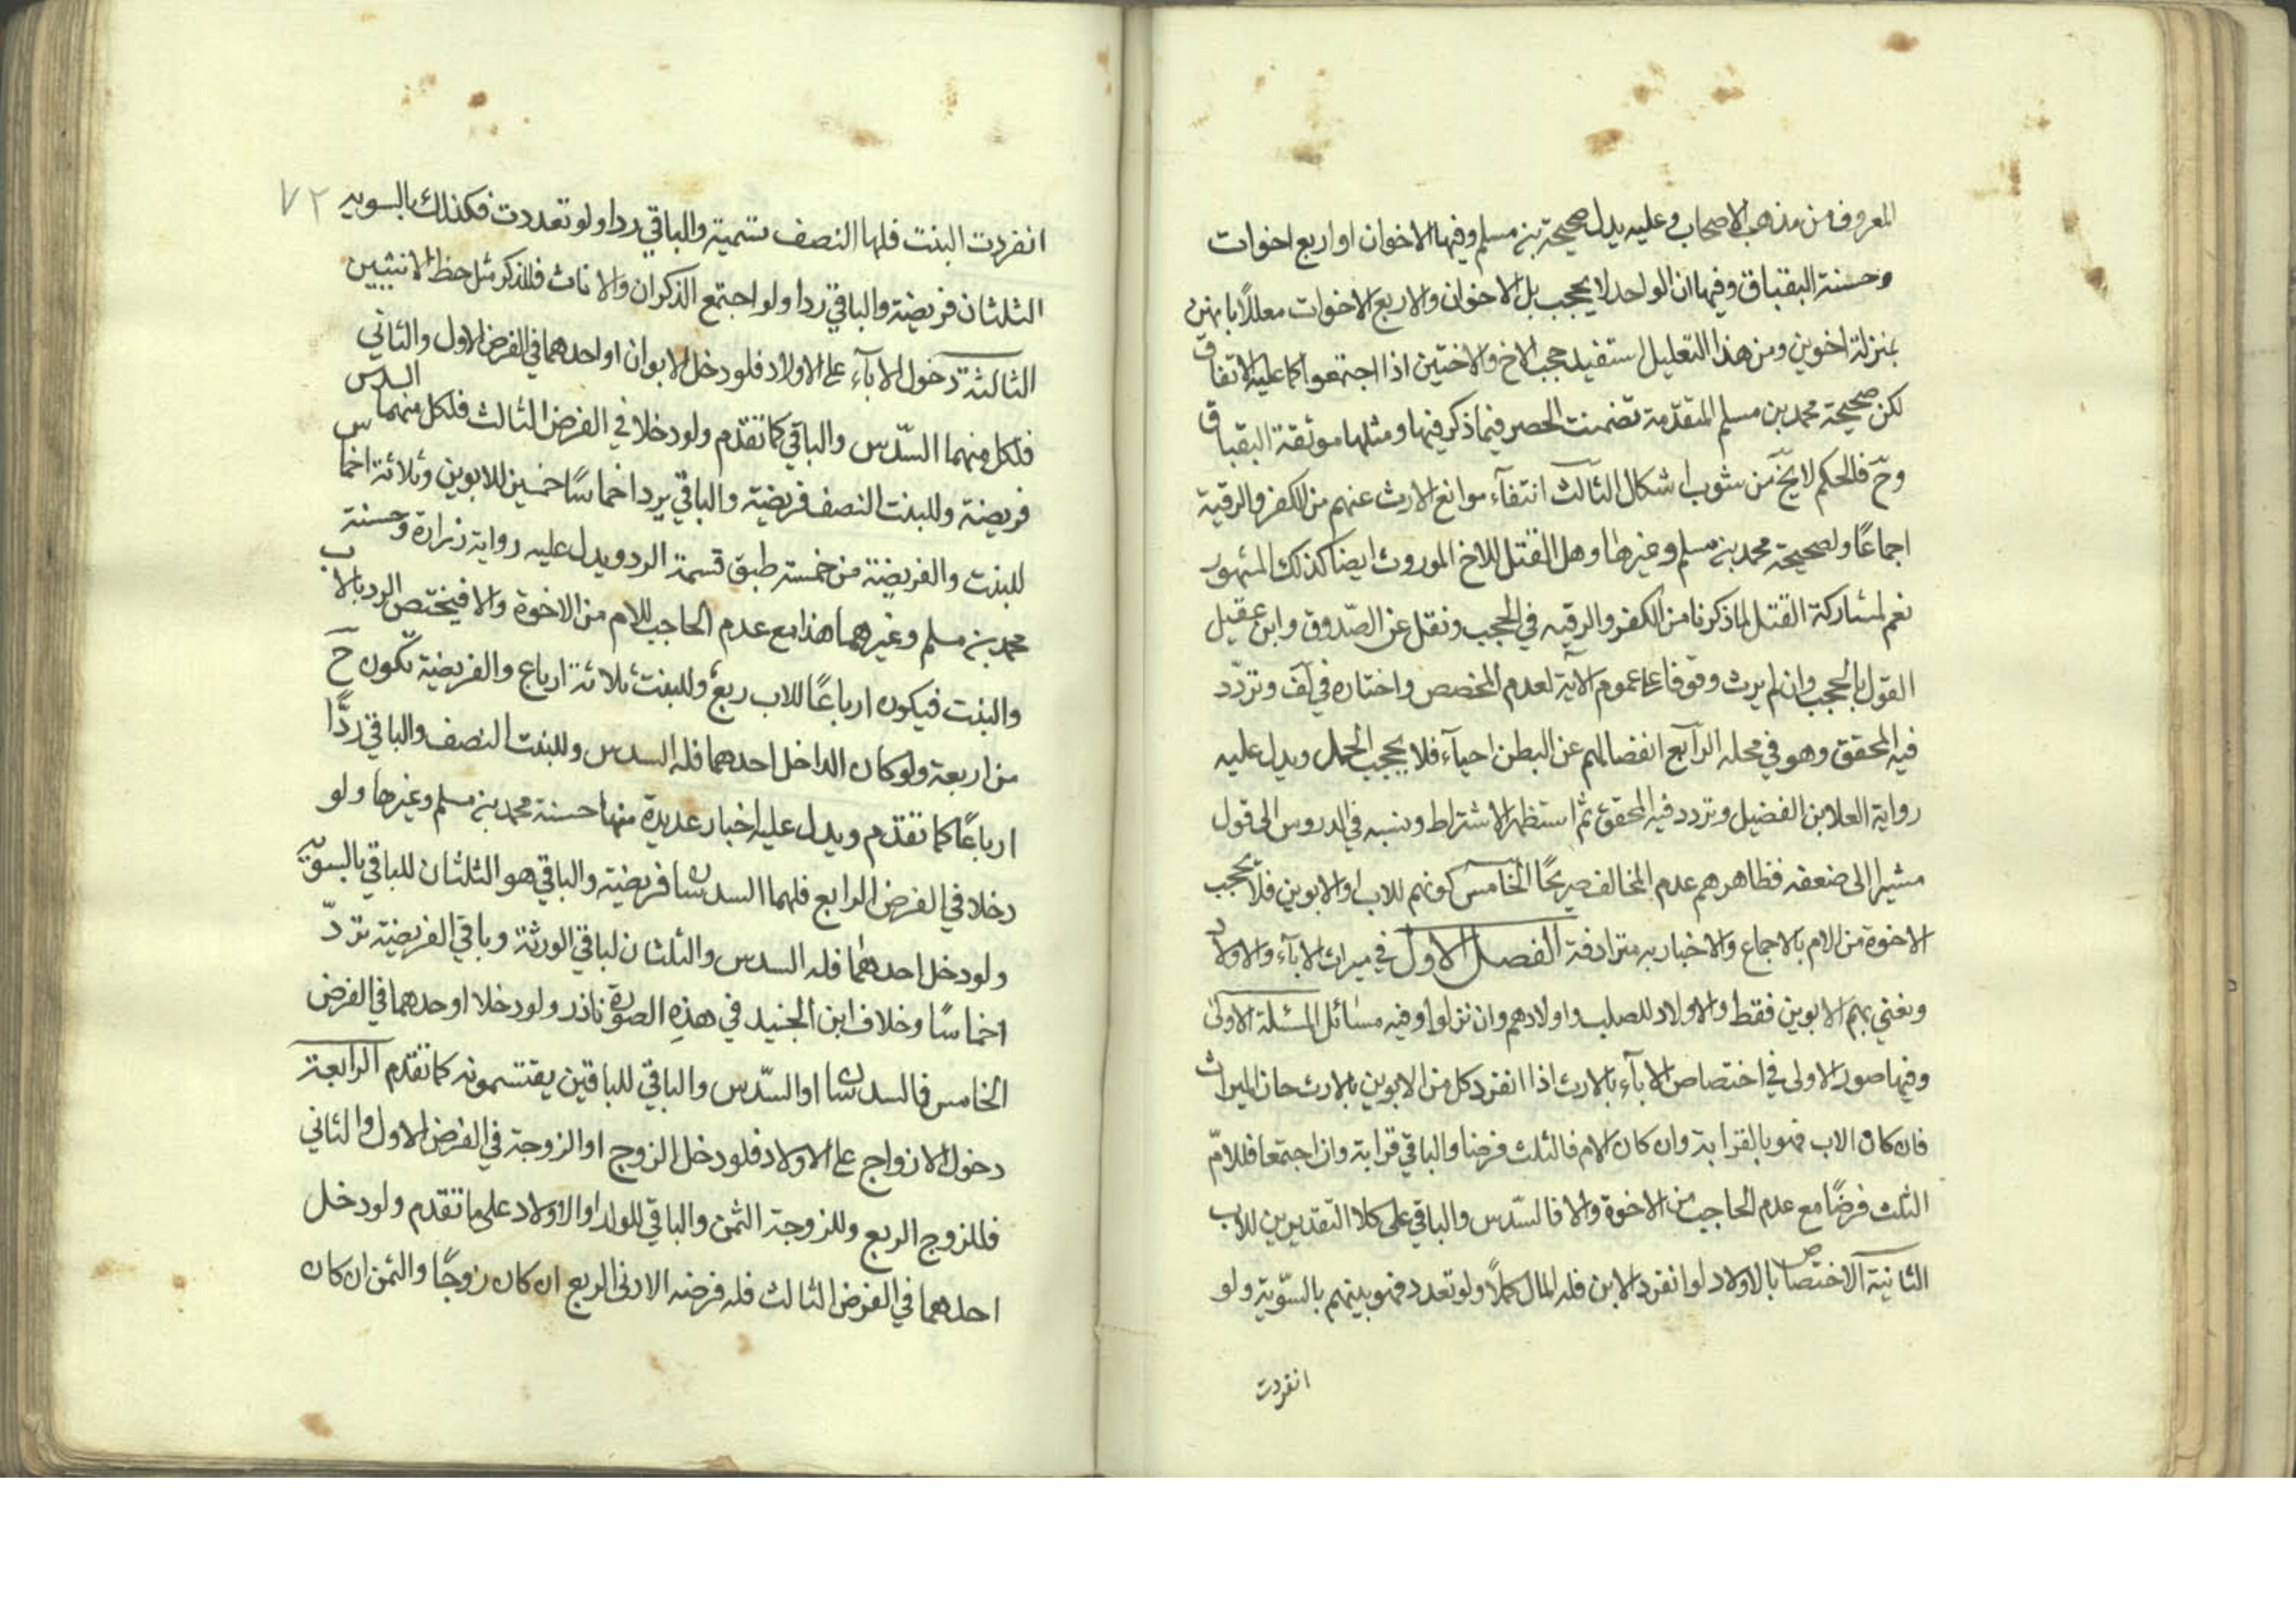 المعروف من مذهب الاصحاب وعليه يدل صحيحة بن مسلم وفيها الاخوان او اربع اخوات
وحسنة البقباق وفيها ان الواحد لا يحجب بل الاخوان والاربع الاخوات معللًا بانهن
بمنزلة اخوين ومن هذا التعليل استفيد حجب الاخ والاختين اذا اجتمعوا كما عليه الاتفاق
لكن صحيحة محمد بن مسلم المتقدّمة تضمنت الحصر فيما ذكر فيها ومثلها موثقة البقباق
وحّ فالحكم لا يخ من شوب اشكال الثالث انتفآء موانع الارث عنهم من الكفر والرقية
اجماعًا ولصحيحة محمد بن مسلم وغيرها وهل القتل للاخ الموروث ايضا كذلك المشهور
نعم لمشاركة القتل لما ذكرنا من الكفر والرقيه في الحجب ونقل عن الصّدوق وابن عقيل
القول بالحجب وان لم يرث وقوفا على عموم الآية لعدم المخصص واختاره في لف وتردّد
فيه المحقق وهو في محله الرابع انفصالهم عن البطن احيآء فلا يحجب الحمل ويدل عليه
رواية العلا بن الفضيل وتردد فيه المحقق ثم استظهر الاشتراط ونسبه في الدروس الى قول
مشيرا الى ضعفه فظاهرهم عدم المخالف صريحًا الخامس كونهم للاب او الابوين فلا يحجب
الاخوة من الام بالاجماع والاخبار به مترادفة الفصل الاول في ميراث الابآء والاولاد
ونعني بهم الابوين فقط والاولاد للصلب واولادهم وان نزلوا وفيه مسائل المسئلة الاولى
وفيها صور الاولى في اختصاص الابآء بالارث اذا انفرد كل من الابوين بالارث حاز الميراث
فان كان الاب فهو بالقرابة وان كان الام فالثلث فرضا والباقي قرابة وان اجتمعا فللامّ
الثلث فرضًا مع عدم الحاجب من الاخوة والا فالسّدس والباقي على كلا التقديرين للاب
الثانية الاختصاص بالاولاد لو انفرد الابن فله المال كملًا ولو تعدد فهو بينهم بالسّوية ولو
انفردت
٧٢
انفردت البنت فلها النصف تسمية والباقي ردا ولو تعددت فكذلك بالسويه
الثلثان فريضة والباقي ردا ولو اجتمع الذكران والاناث فللذكر مثل حظ الانثيين
الثالثة دخول الابآء على الاولاد فلو دخل الابوان او احدهما في الفرض الاول والثاني
فلكل منهما السّدس والباقي كما تقدم ولو دخلا في الفرض الثالث فلكل منهما السدس
فريضة وللبنت النصف فريضة والباقي يرد اخماسًا خمسين للابوين وثلاثة اخماس
للبنت والفريضة من خمسة طبق قسمة الرد ويدل عليه رواية زرارة وحسنة
محمد بن مسلم وغيرهما هذا مع عدم الحاجب للام من الاخوة والا فيختص الرد بالاب
والبنت فيكون ارباعًا للاب ربع وللبنت ثلاثة ارباع والفريضة تكون حّ
من اربعة ولو كان الداخل احدهما فله السدس وللبنت النصف والباقي ردًّا
ارباعًا كما تقدم ويدل عليه اخبار عديدة منها حسنة محمد بن مسلم وغيرها ولو
دخلا في الفرض الرابع فلهما السدسان فريضة والباقي هو الثلثان للباقي بالسوّيه
ولو دخل احدهما فله السدس والثلثان لباقي الورثة وباقي الفريضة تردّ
اخماسًا وخلاف ابن الجنيد في هذه الصورة نادر ولو دخلا او احدهما في الفرض
الخامس فالسدسان او السّدس والباقي للباقين يقتسمونه كما تقدم الرابعة
دخول الازواج على الاولاد فلو دخل الزوج او الزوجة في الفرض الاول والثاني
فللزوج الربع وللزوجة الثمن والباقي للولد او الاولاد على ما تقدم ولو دخل
احدهما في الفرض الثالث فله فرضه الادنى الربع ان كان زوجًا والثمن ان كان